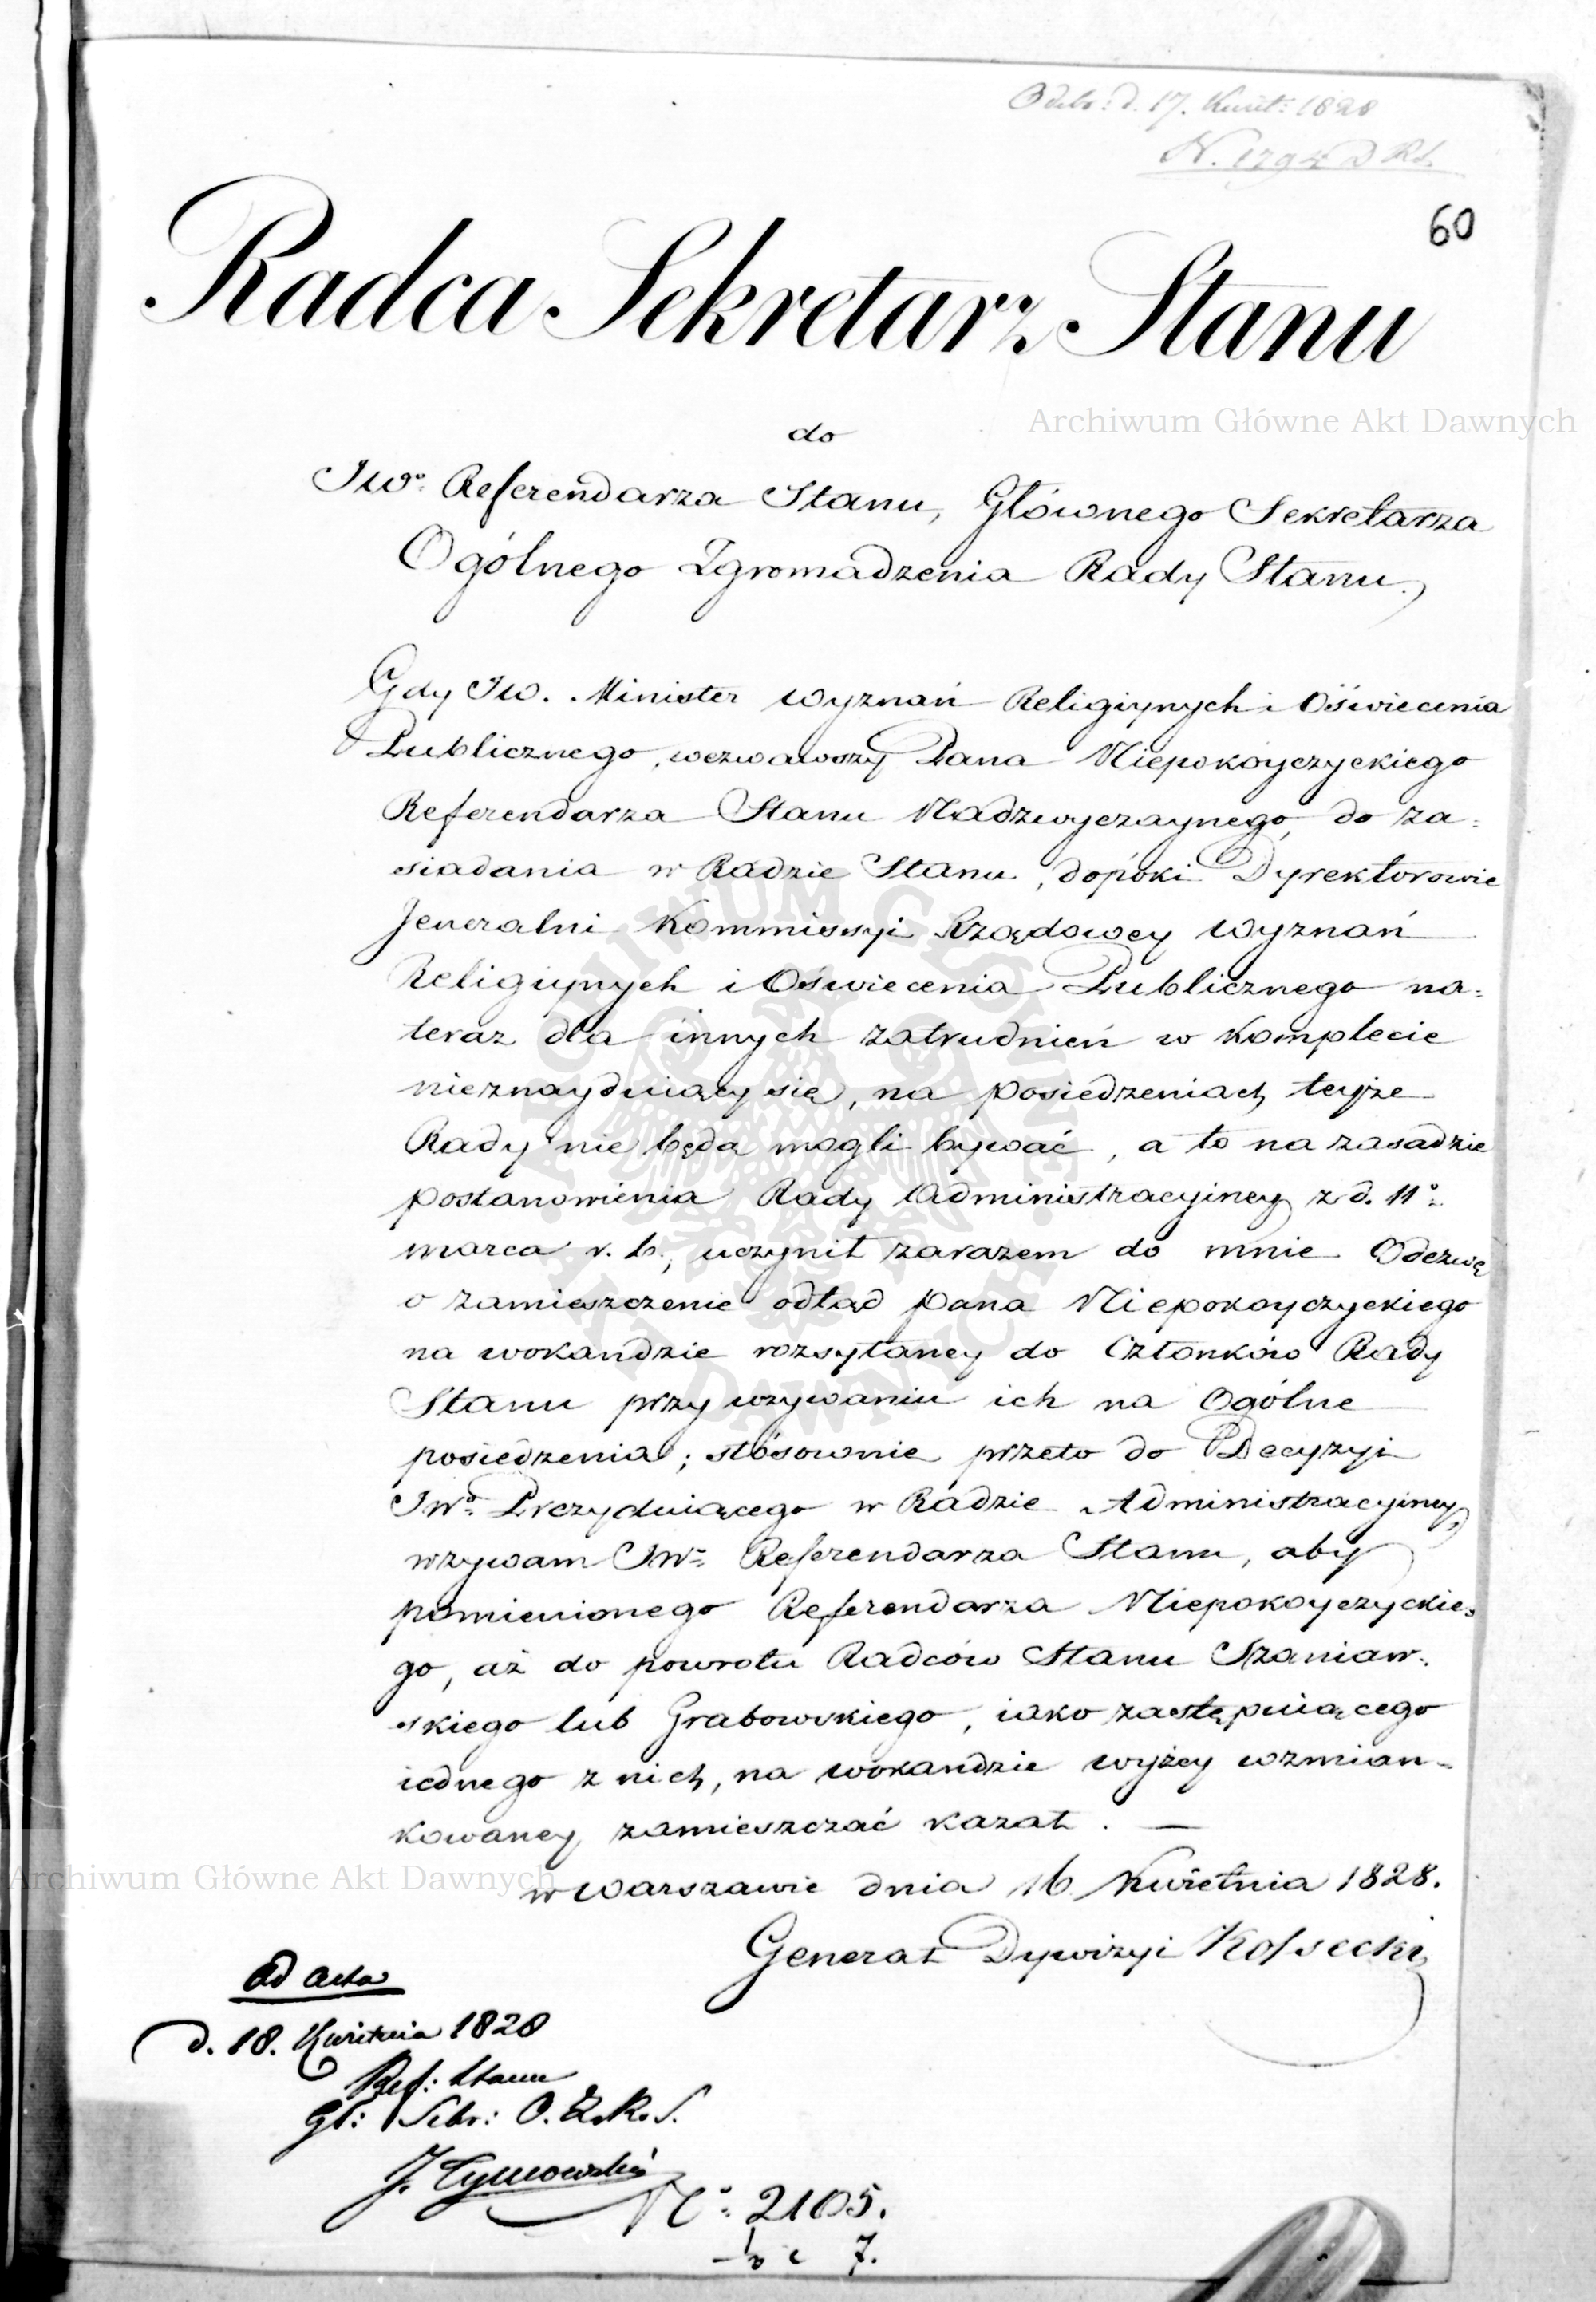 Odebr: d. 17. Kwiet: 1828
N. 1794 D RS.
60
Radca Sekretarz Stanu
Archiwum Główne Akt Dawnych
do
JWo. Referendarza Stanu, Głównego Sekretarza
Ogólnego Zgromadzenia Rady Stanu.
Gdy JW. Minister Wyznań Religiynych i Oświecenia
Publicznego, wezwawszy Pana Niepokoyczyckiego
Referendarza Stanu Nadzwyczaynego, do za=
siadania w Radzie Stanu, dopóki Dyrektorowie
Jeneralni Kommissyi Rządowey Wyznań
Religiynych i Oświecenia Publicznego na=
teraz dla innych zatrudnień w Komplecie
nieznayduiący się, na posiedzeniach teyże
Rady nie będą mogli bywać, a to na zasadzie
postanowienia Rady Administracyiney z d. 11o
marca r. b., uczynił zarazem do mnie Odezwę
o zamieszczenie odtąd Pana Niepokoyczyckiego
na wokandzie rozsyłaney do Członków Rady
Stanu przy wzywaniu ich na Ogólne
posiedzenia; stósownie przeto do Decyzyi
JWo. Prezyduiącego w Radzie Administracyiney,
wzywam JWo. Referendarza Stanu, aby
pomienionego Referendarza Niepokoyczyckie=
go, aż do powrotu Radców Stanu Szaniaw=
skiego lub Grabowskiego, iako zastępuiącego
iednego z nich, na wokandzie wyżey wzmian=
kowaney zamieszczać kazał. —
Archiwum Główne Akt Dawnych
w Warszawie dnia 16 Kwietnia 1828.
Generał Dywizyi Kossecki
ad acta
d. 18. Kwietnia 1828
Ref: Stanu
Gł: Sekr: O. Z. R. S.
J. Tymowski
No. 2105.
7.